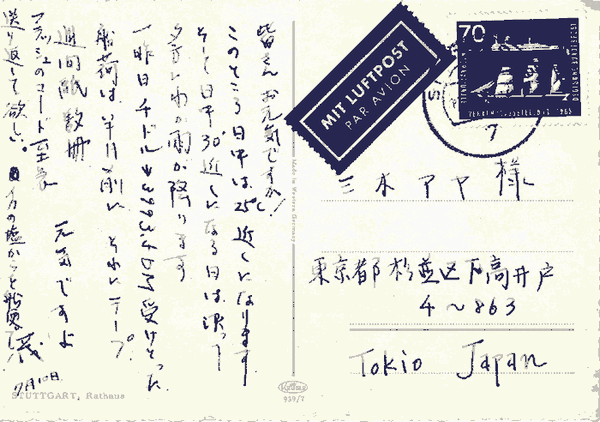 皆さん お元気ですか!
このところ 日中は25°近くになります
そして日中30°近くになる日は決って
夕立しかも雨が降ります
一昨日 チドル 3993.4 DM 受けとった
船荷は 半月前に それにテープ
週間紙 数冊
元気ですよ
コード 至急
送り返して欲しい。
茂
7月10日
STUTTGART, Rathaus
Made in Western Germany
Krüger
929/7
MIT LUFTPOST
PAR AVION
70
DEUTSCHE BUNDESPOST
三木 アヤ 様
東京都 杉並区下高井戸
4〜863
Tokio Japan